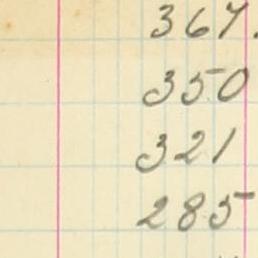 367.
350
321
285